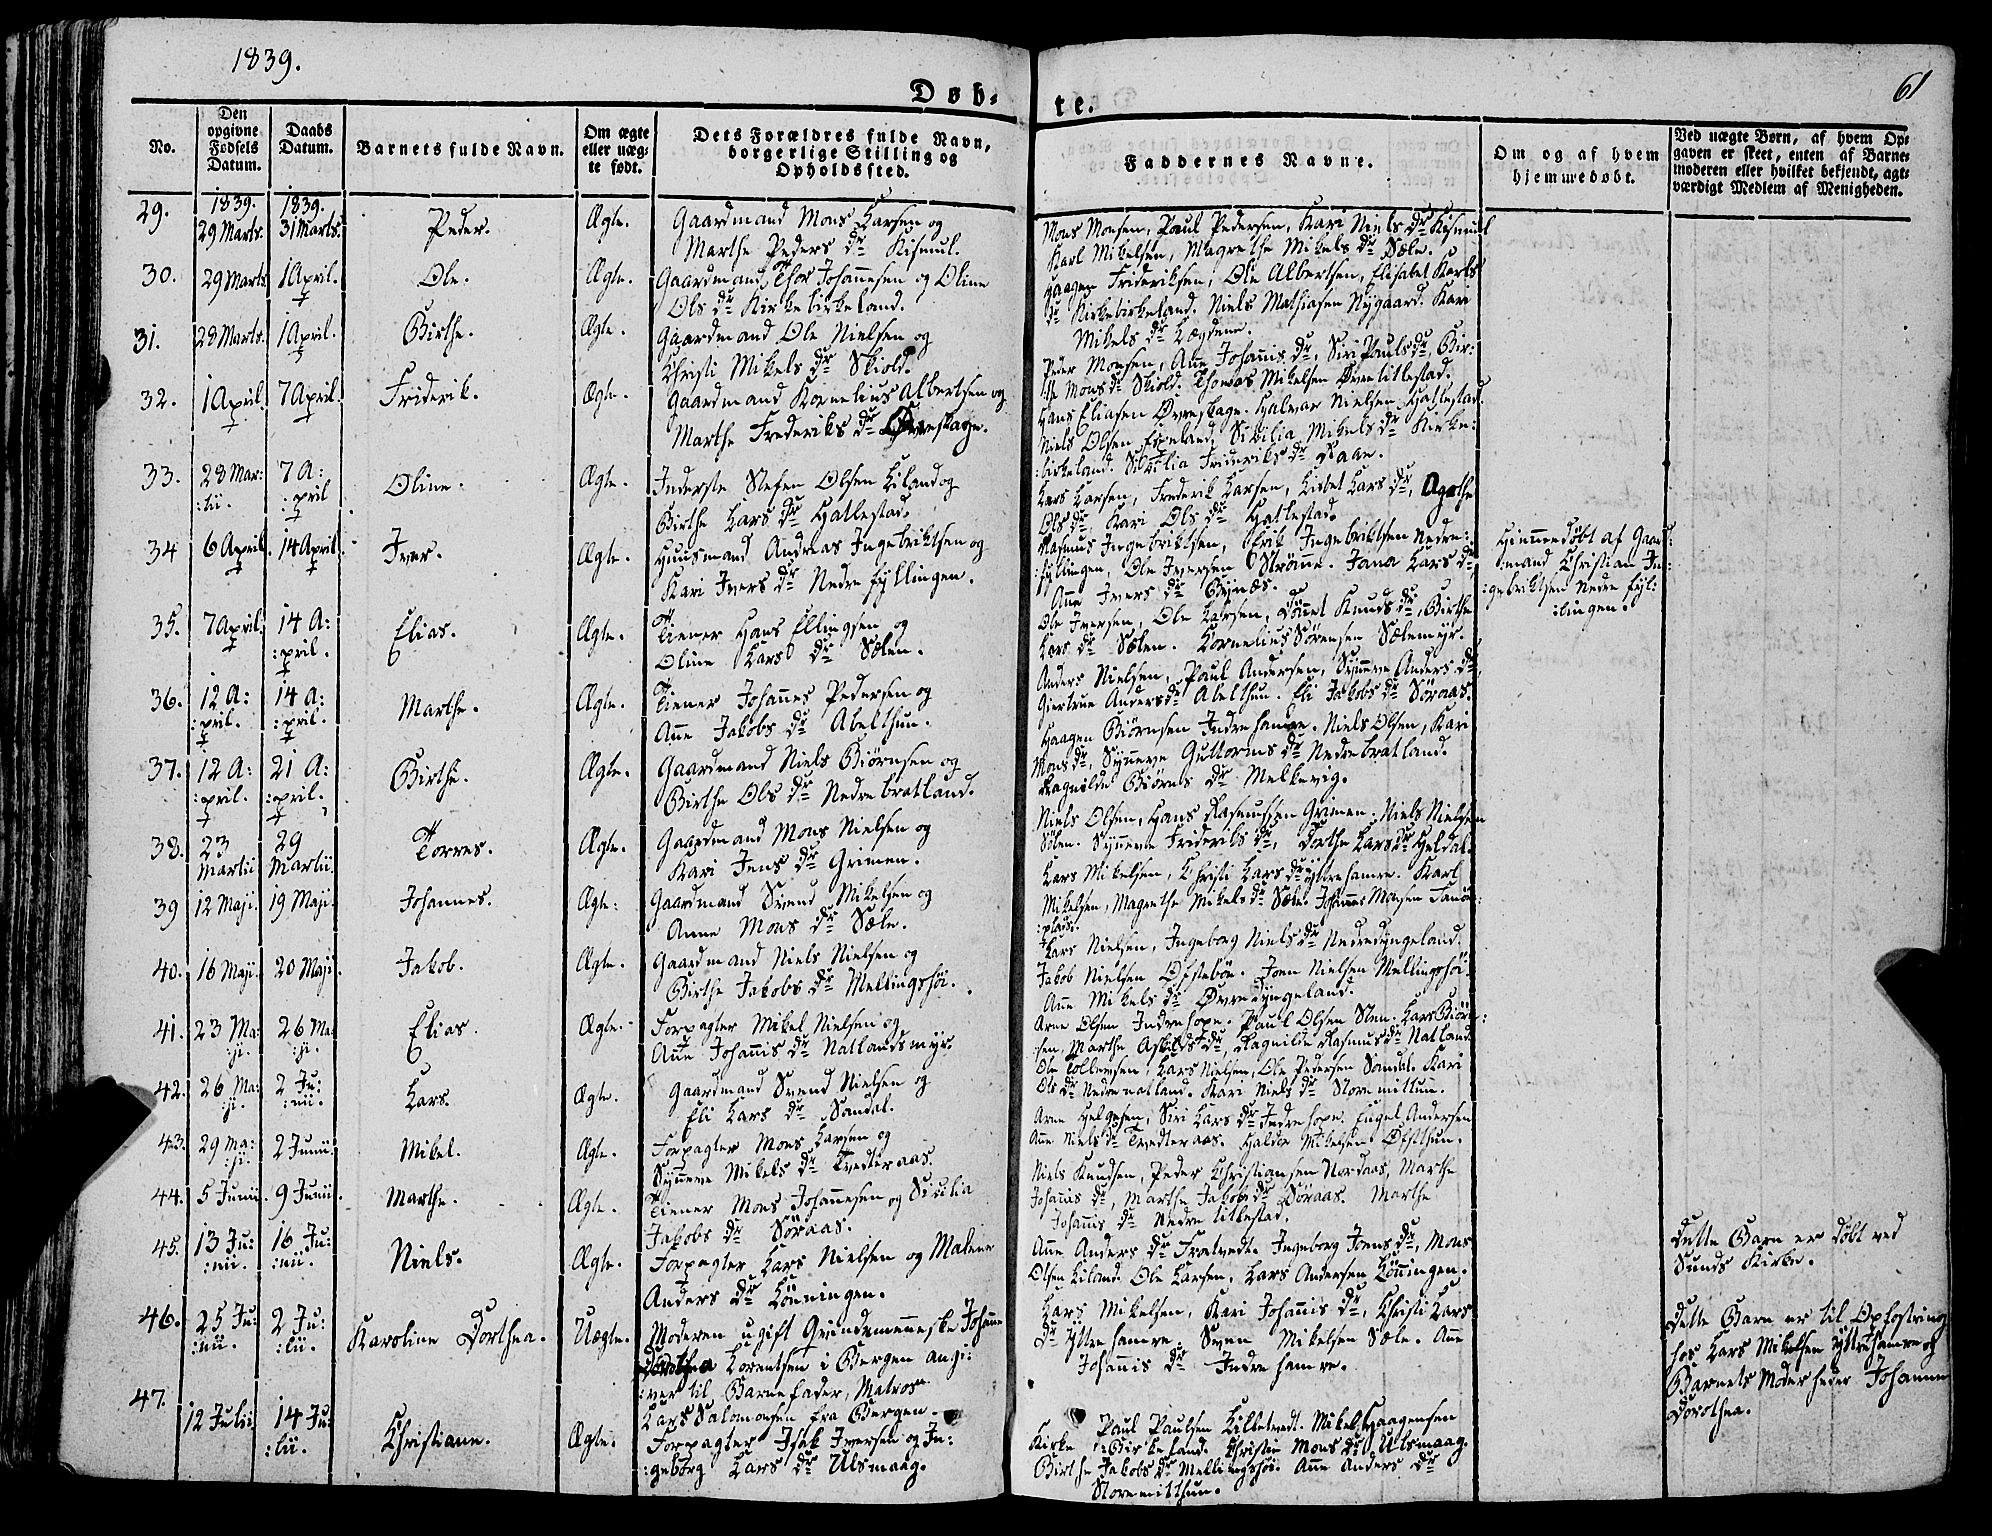 1839.
61
Døb-
te.
No.
Den opgivne Fødsels Datum.
Daabs Datum.
Barnets fulde Navn.
Om ægte eller uægte født.
Dets Forældres fulde Navn, borgerlige Stilling og Opholdssted.
Faddernes Navne.
Om og af hvem hjemmedøbt.
Ved uægte Børn, af hvem Opgaven er skeet, enten af Barnemoderen eller hvilket bekjendt, agtværdigt Medlem af Menigheden.
29. 1839. 29 Marts. 1839. 31 Marts. Peder. Ægte. Gaardmand Mons Larsen og
Marthe Peders dr Kismul.
Mons Monsen, Paul Pedersen, Kari Niels dr Kismul
Karl Mikelsen, Magrethe Mikels dr Sæle.
30. 29 Marts 1 April. Ole. Ægte. Gaardmand Thor Johannesen og Oline
Ols dr Kirkebirkeland.
Haagen Frideriksen, Ole Albertsen, Elisabet Karls
dr Kirkebirkeland. Niels Mathiasen Nygaard. Kari
Mikels dr Lægdene.
31. 28 Marts. 1 April. Birthe. Ægte. Gaardmand Ole Nielsen og
Christi Mikels dr Skiold.
Peder Monsen, Añe Johañis dr, Siri Pauls dr, Bir:
:the Mons dr Skiold. Thomas Mikelsen Øvretitlestad.
32. 1 April. 7 April. Friderik. Ægte. Gaardmand Kornelius Albertsen og
Marthe Frederiks dr Øvreskage.
Hans Eliasen Øvreskage. Halvar Nielsen Hatlestad.
Niels Olsen Espeland, Sicilia Mikels dr Kirke:
:birkeland. Sicilia Frideriks dr Raae.
33. 28 Mar:
:tii. 7 A:
:pril Oline. Ægte. Inderste Stefen Olsen Liland og
Birthe Lars dr Hatlestad.
Lars Larsen, Frederik Larsen, Lisbet Lars dr, Agathe
Ols dr, Kari Ols dr Hatlestad.
34 6 April. 14 April. Iver. Ægte. Huusmand Andreas Ingebriktsen og
Kari Ivers dr Nedre fyllingen.
Rasmus Ingebriktsen, Erik Ingebriktsen Nedre:
:fyllingen, Ole Iversen Strømme. Jana Lars dr,
Añe Ivers dr Bynæs.
Hiemmedøbt af Gaard:
:mand Christian In:
:gebriktsen Nedre fyl:
:lingen.
35. 7 April. 14 A:
:pril. Elias. Ægte. Tiener Hans Ellingsen og
Oline Lars dr Sælen.
Ole Iversen, Ole Larsen, Knuds dr, Birthe
Lars dr Sælen. Kornelius Sørensen Sælemyr.
36. 12 A:
:pril. 14 A:
:pril. Marthe. Ægte. Tiener Johañes Pedersen og
Añe Jakobs dr Abelthun.
Anders Nielsen, Paul Andersen, Synneve Anders dr,
Giertrue Anders dr Abelthun. Eli Jakobs dr Søraas.
37. 12 A:
:pril. 21 A:
:pril. Birthe. Ægte. Gaardmand Niels Biørnsen og
Birthe Ols dr Nedre bratland.
Haagen Biørnsen Indre hamre. Niels Olsen, Kari
Mons dr, Synneve Guttorms dr Nedrebratland.
Ragnilde Biørns dr Melkevig.
38. 23
Martii 29
Martii. Torres. Ægte. Gaardmand Mons Nielsen og
Kari Jens dr Grimen.
Niels Olsen, Hans Rasmussen Grimen. Niels Nielsen
Sølen. Synneve Frideriks dr, Dorthe Lars dr Heldal.
39 12 Maji. 19 Maji. Johannes. Ægte. Gaardmand Svend Mikelsen og
Anne Mons dr Sæle.
Lars Mikelsen, Christi Lars dr yttrehamre. Karl
Mikelsen, Magrethe Mikels dr Sæle. Johannes Monsen
:plads.
40. 16 Maji. 20 Maji. Jakob. Ægte. Gaardmand Niels Nielsen og
Birthe Jakobs dr Mellingshøi.
Lars Nielsen, Ingeborg Niels dr Nedredyngeland.
Jakob Nielsen Øfstebøe. Joen Nielsen Mellingshøi.
Añe Mikels dr Øvredyngeland.
41. 23 Ma:
:ji. 26 Ma:
:ji. Elias. Ægte. Forpagter Mikel Nielsen og
Añe Johañis dr Natlandsmyr.
Arne Olsen Indrehope. Paul Olsen Slen. Lars Biørn:
:sen, Marthe dr, Ragnilde Rasmus dr Natland.
42. 26 Ma:
:ji. 2 Ju:
:nii. Lars. Ægte. Gaardmand Svend Nielsen og
Eli Lars dr Sandal.
Ole Tollevsen, Lars Nielsen, Ole Pedersen Sandal. Kari
Ols dr Nedrenatland. Kari Niels dr Store mitlun.
43. 29 Ma:
:ji. 2 Junii. Mikel. Ægte. Forpagter Mons Larsen og
Syñeve Mikels dr Tvedteraas.
Arne Helgesen, Siri Lars dr Indre hope. Engel Andersen
Añe Niels dr Tvedteraas. Haldor Mikelsen Øfstthun.
44. 5 Junii. 9 Junii. Marthe. Ægte. Tiener Mons Johañesen og Sicilia
Jakobs dr Søraas.
Niels Knudsen, Peder Christiansen Nordaas, Marthe
Johañis dr, Marthe Jakobs dr Søraas. Marthe
Johañis dr Nedre titlestad.
45. 13 Ju:
:nii. 16 Ju:
:nii. Niels. Ægte. Forpagter Lars Nielsen og Malene
Anders dr Lønningen.
Añe Anders dr Fratvedt. Ingeborg Joens dr, Mons
Olsen Liland. Ole Larsen, Lars Andersen Lønningen.
Dette Barn er døbt ved
Sunds Kirke.
46. 25 Ju:
:nii. 2 Ju:
:lii. Karoline Dorthea. Uægte. Moderen ugift Johanne
Dorothea Lorentsen i Bergen angi:
:ver til Barnefader, Matros
Lars Salomonsen fra Bergen.
Lars Mikelsen, Kari Johañis dr, Christi Lars
dr yttrehamre. Sven Mikelsen Sæle. Añe
Johañis dr Indre hamre.
Dette Barn er til Opfostring
hos Lars Mikelsen yttrehamre og
Barnets Moder heder Johanne
Dorothea.
47. 12 Julii 14 Ju:
:lii. Christiane. Ægte. Forpagter Isak Iversen og In:
:geborg Lars dr Ulsmaag.
Paul Paulsen Lilletvedt. Mikel Haagensen
Kirke :birkeland. Christi Mons dr Ulsmaag.
Birthe Jakobs dr Mellingshøi. Añe Anders dr
Storemitthun.